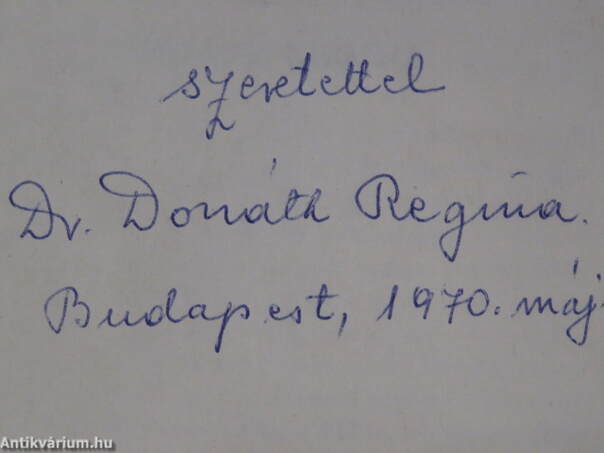 szeretettel
Dr. Donáth Regina.
Budapest, 1970. máj.
Antikvárium.hu